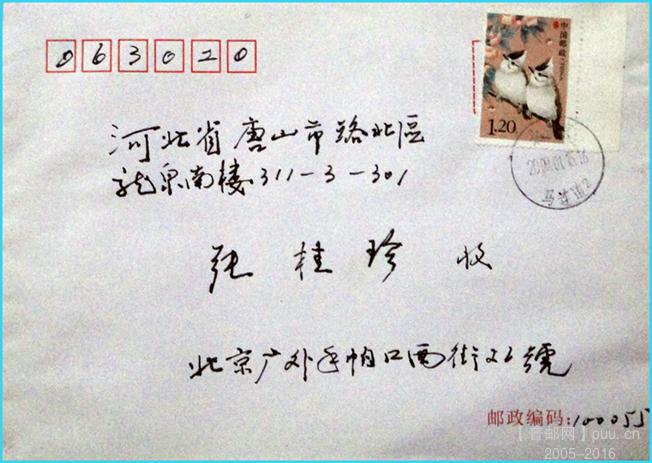 063020
中国邮政
CHINA
1.20
河北省唐山市路北區
龙泉南楼311-3-301
张桂珍 收
北京广外手帕口西街 號
邮政编码:100055
【普邮网】puu.cn
2005-2016